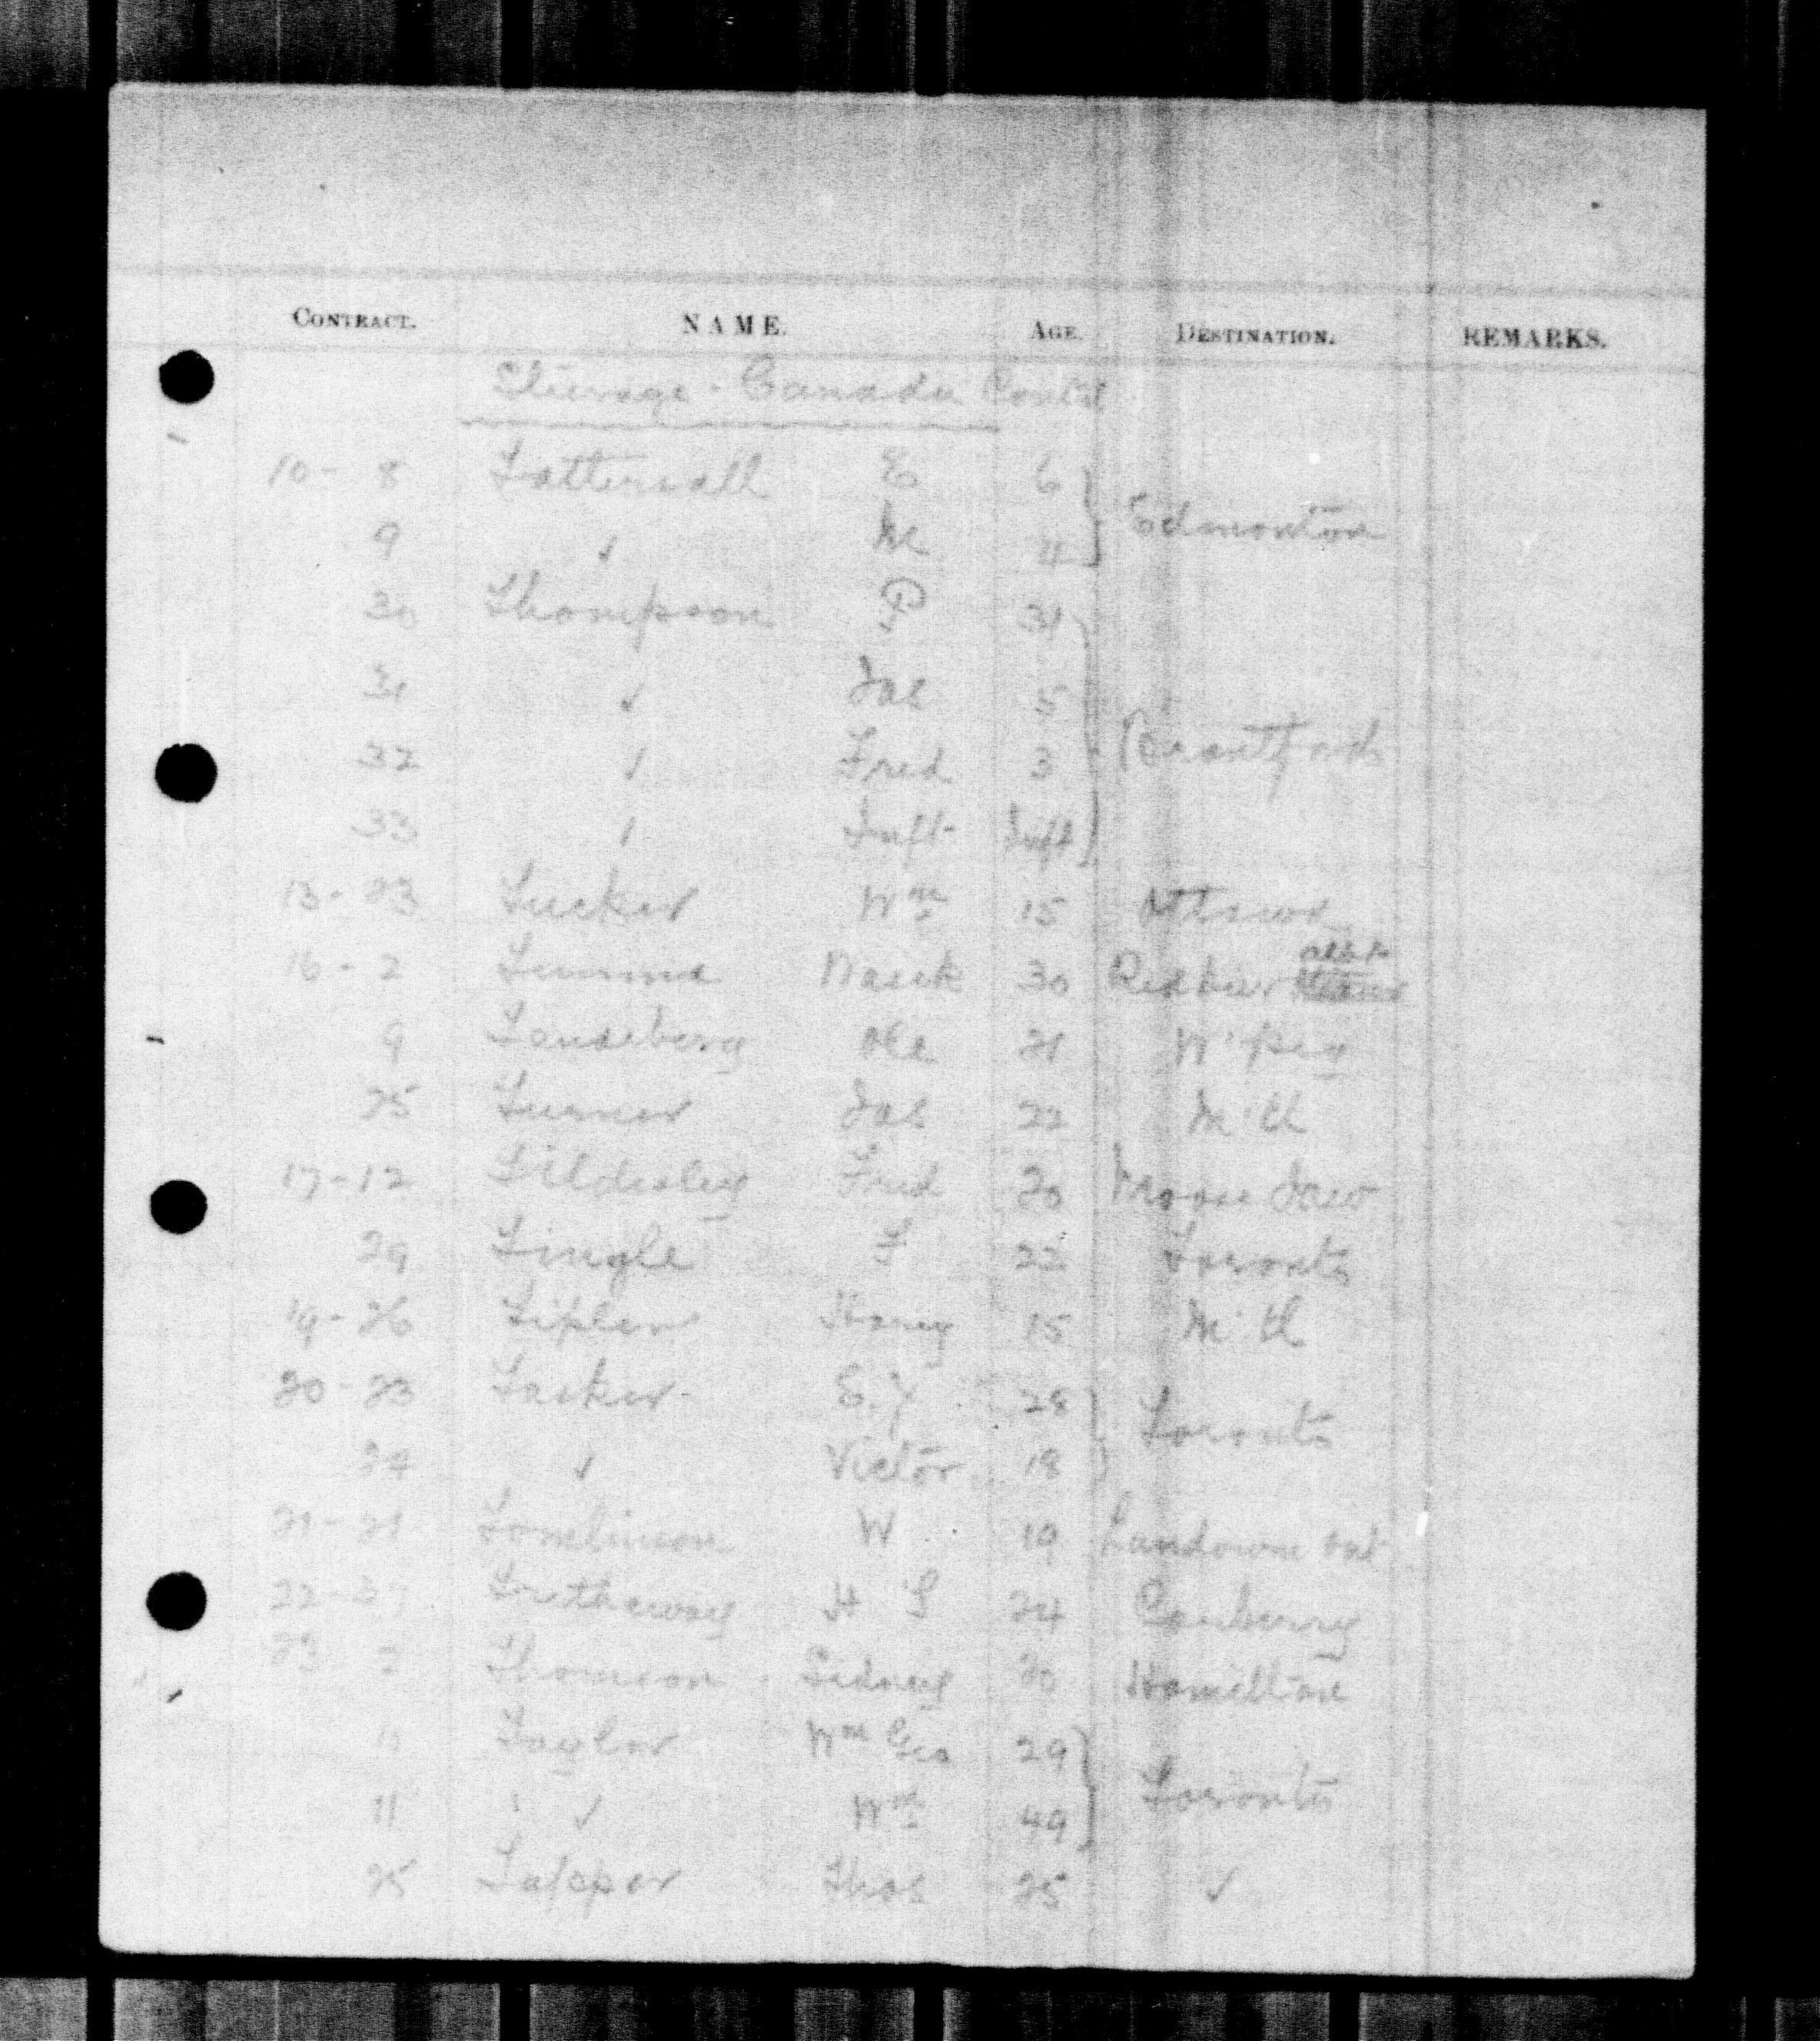 CONTRACT. NAME. AGE. DESTINATION. REMARKS.
Steerage - Canada Contd
10 - 8 Tattersall E 6 } Edmonton
9 ✓ M 11
30 Thompson P 31
31 ✓ Jas 5
32 ✓ Fred 3 } Brantford
33 ✓ Inft Inft
13 - 23 Tucker Wm 15 Ottawa
16 - 2 30
9 Ole 21 W'peg
25 Turner Jas 22 M'tl
17-12 Tildesley Fred 20 Moose Jaw
29 Tingle F 22 Toronto
19-26 Tipler Harry 15 M'tl
20-23 Tasker E. Y 28 } Toronto
24 ✓ Victor 18
21-21 Tomlinson W 19 Landowne Ont
Trethaway H S 24 Carberry
23 - 2 Thomson Sidney 20 Hamilton
10 Taylor Wm Geo 29 } Toronto
11 ✓ Wm 49
25 Tapper Thos 25 ✓